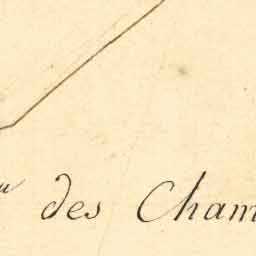 des Cham